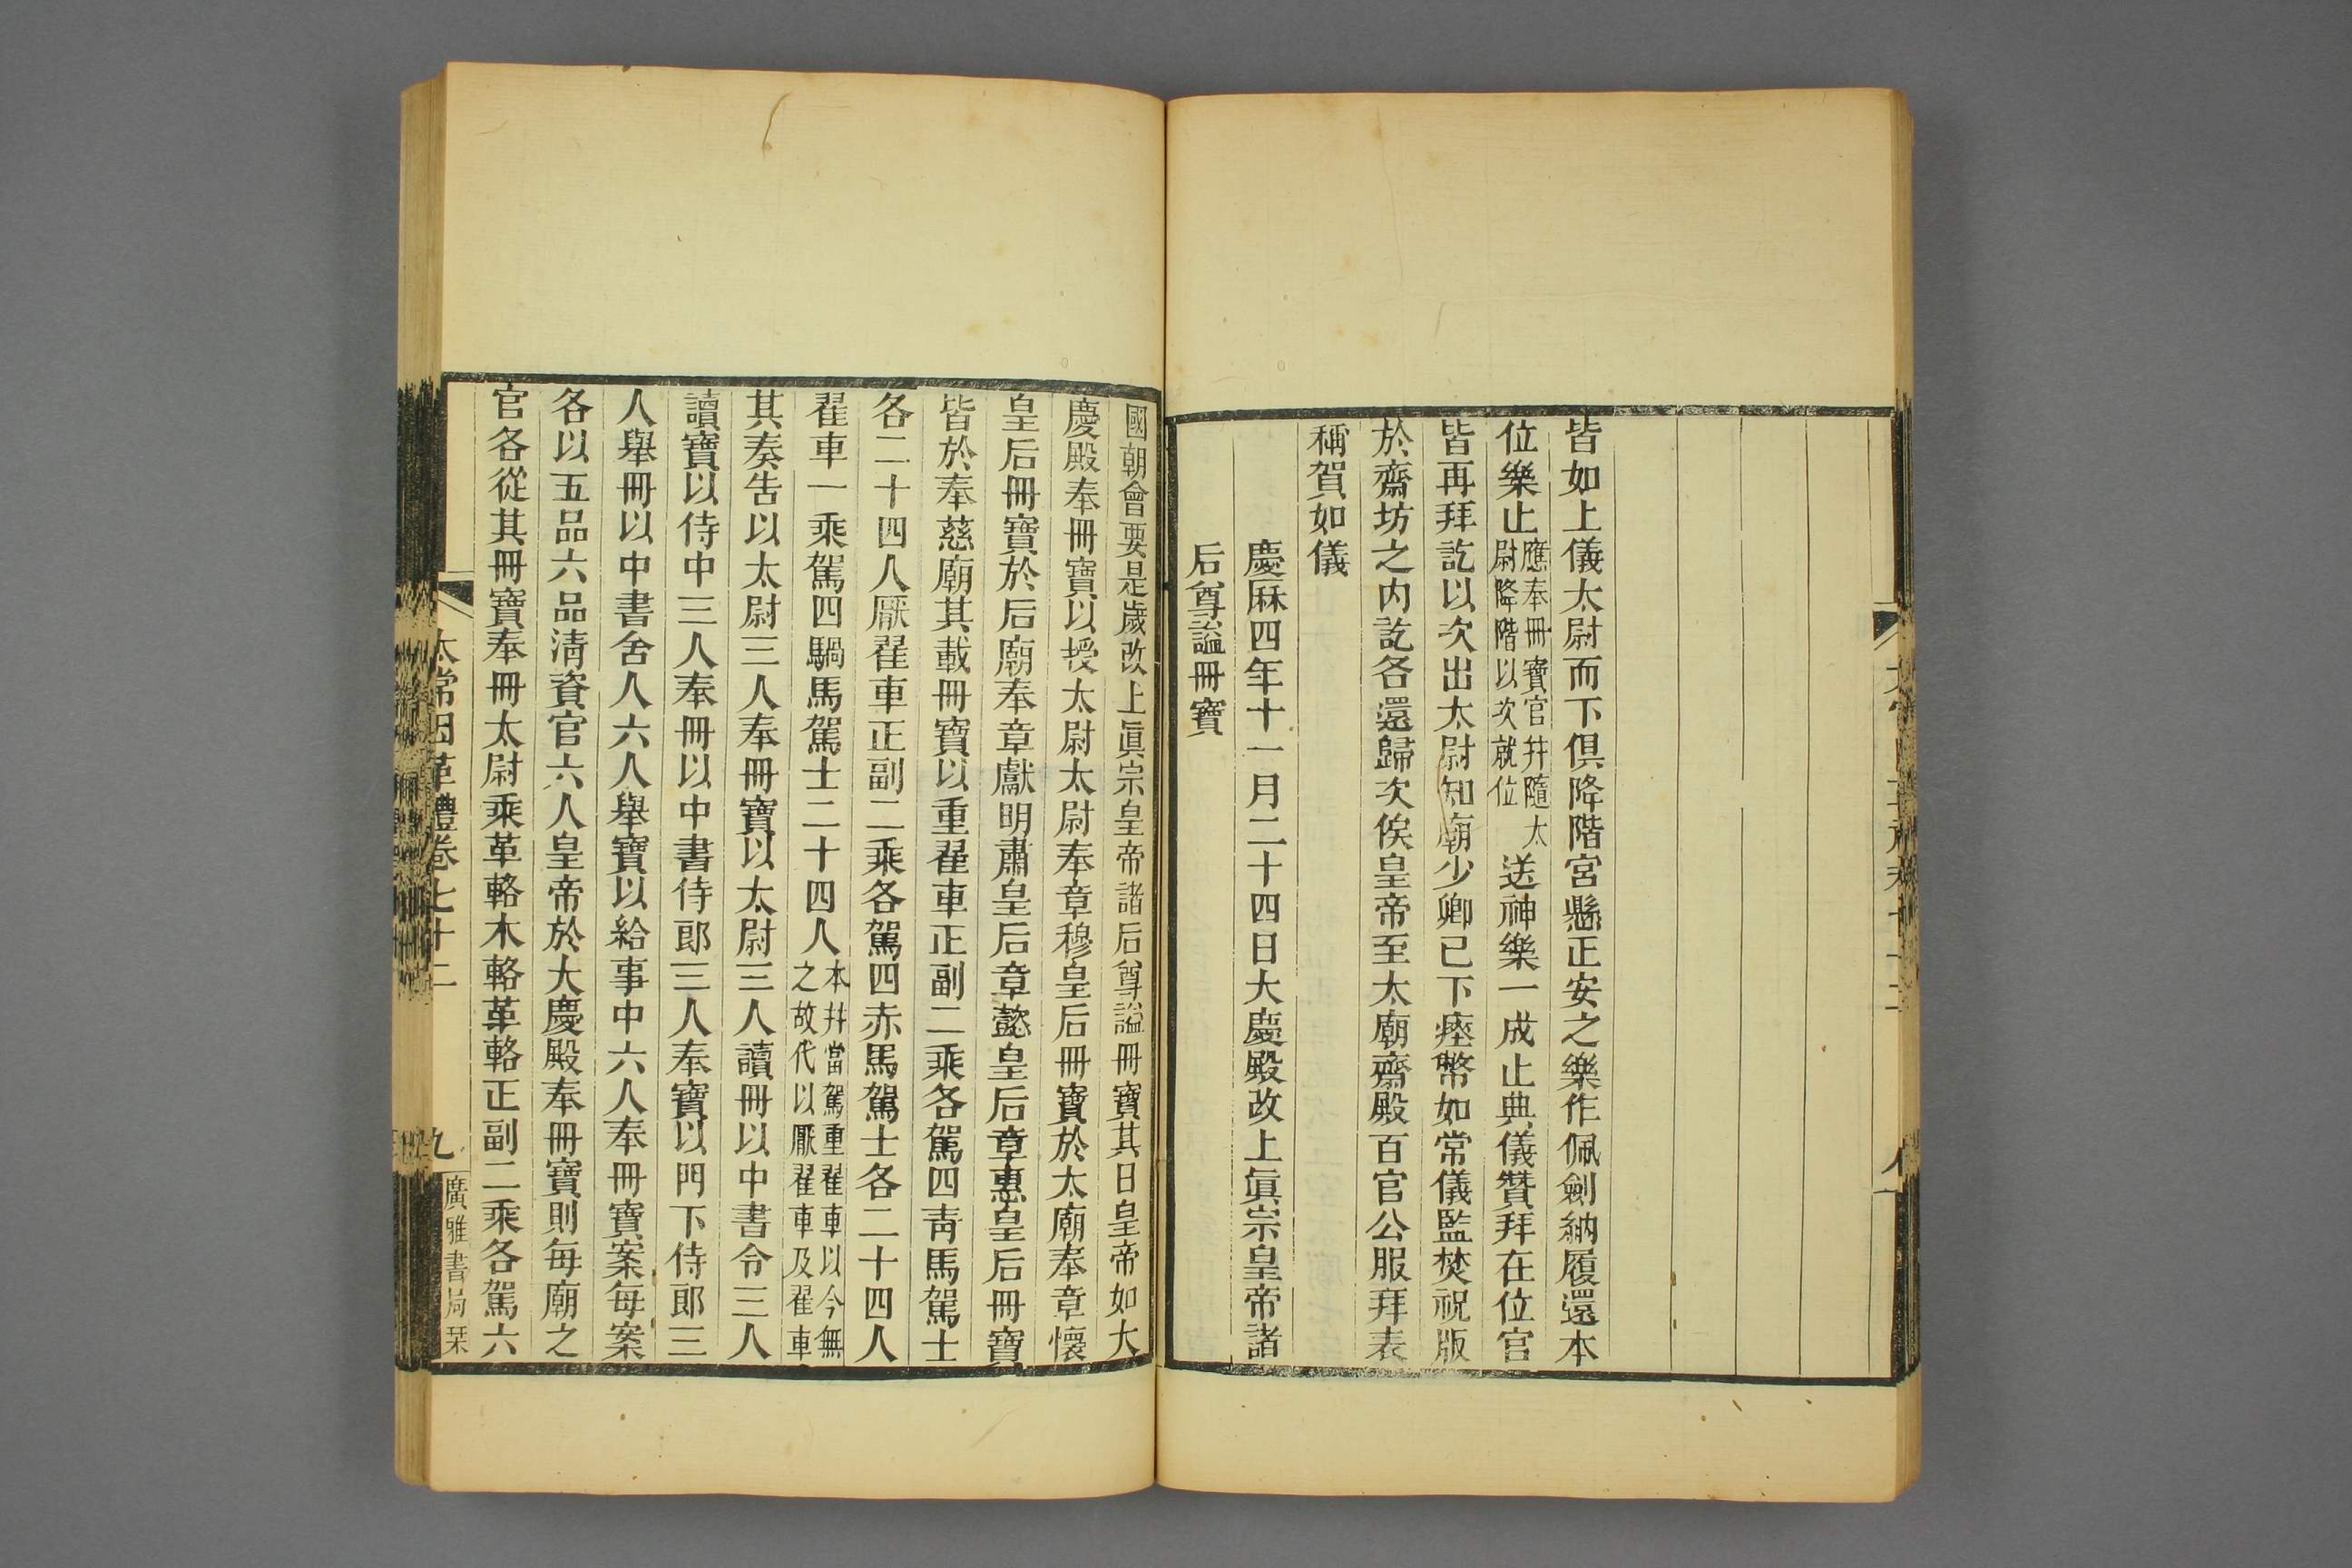 皆如上儀太尉而下俱降階宮懸正安之樂作佩劍納履還本
位樂止應奉冊寶官幷隨太尉降階以次就位送神樂一成止典儀贊拜在位官
皆再拜訖以次出太尉知廟少卿已下瘞幣如常儀監焚祝版
於齋坊之內訖各還歸次俟皇帝至太廟齋殿百官公服拜表
稱賀如儀
慶厤四年十一月二十四日大慶殿改上眞宗皇帝諸
后尊謚冊寶
國朝會要是歲改上眞宗皇帝諸后尊謚冊寶其日皇帝如大
慶殿奉冊寶以授太尉太尉奉章穆皇后冊寶於太廟奉章懷
皇后冊寶於后廟奉章獻明肅皇后章懿皇后章惠皇后冊寶
皆於奉慈廟其載冊寶以重翟車正副二乘各駕四靑馬駕士
各二十四人厭翟車正副二乘各駕四赤馬駕士各二十四人
翟車一乘駕四騧馬駕士二十四人本幷當駕重翟車以今無之故代以厭翟車及翟車
其奏告以太尉三人奉冊寶以太尉三人讀冊以中書令三人
讀寶以侍中三人奉冊以中書侍郎三人奉寶以門下侍郎三
人舉冊以中書舍人六人舉寶以給事中六人奉冊寶案每案
各以五品六品淸資官六人皇帝於大慶殿奉冊寶則每廟之
官各從其冊寶奉冊太尉乘革輅木輅革輅正副二乘各駕六
太常因革禮卷七十二
九
廣雅書局栞